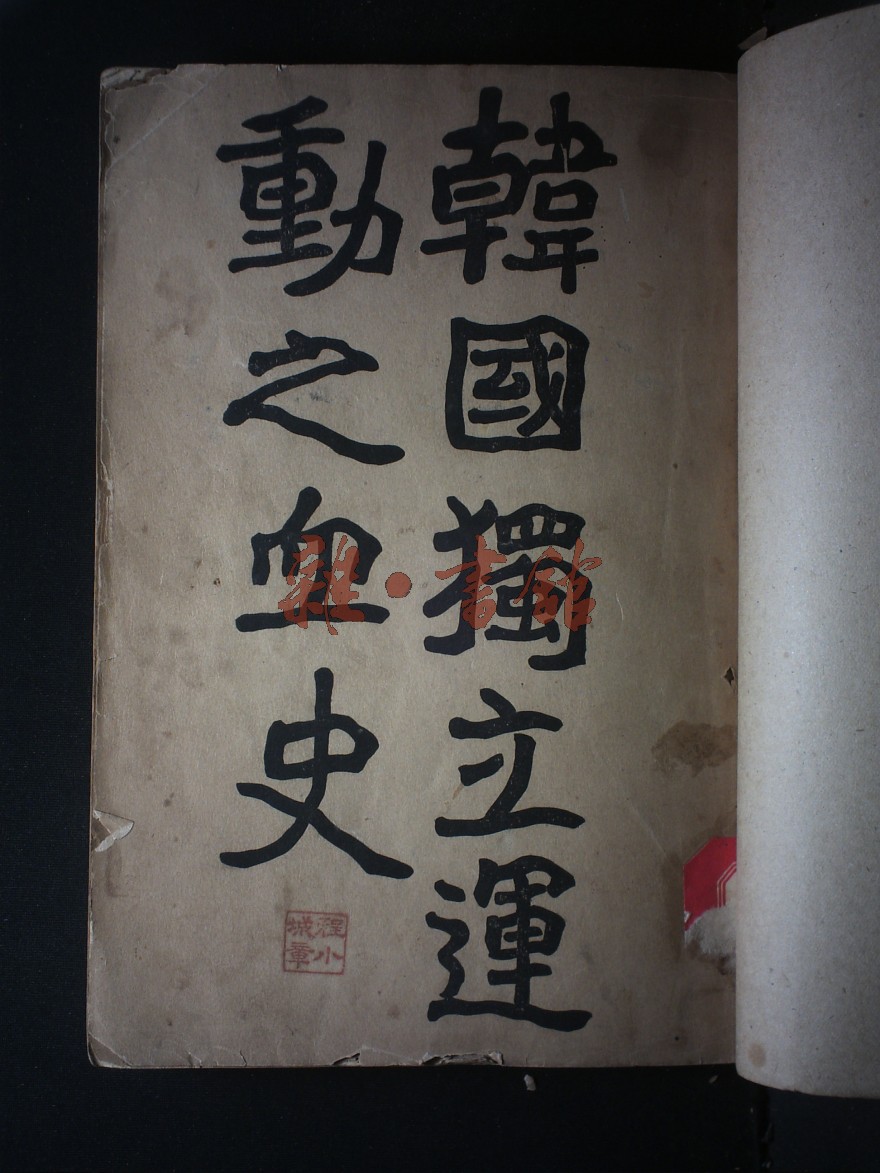 韓國獨立運
動之血史
雜·書館
程小
城章